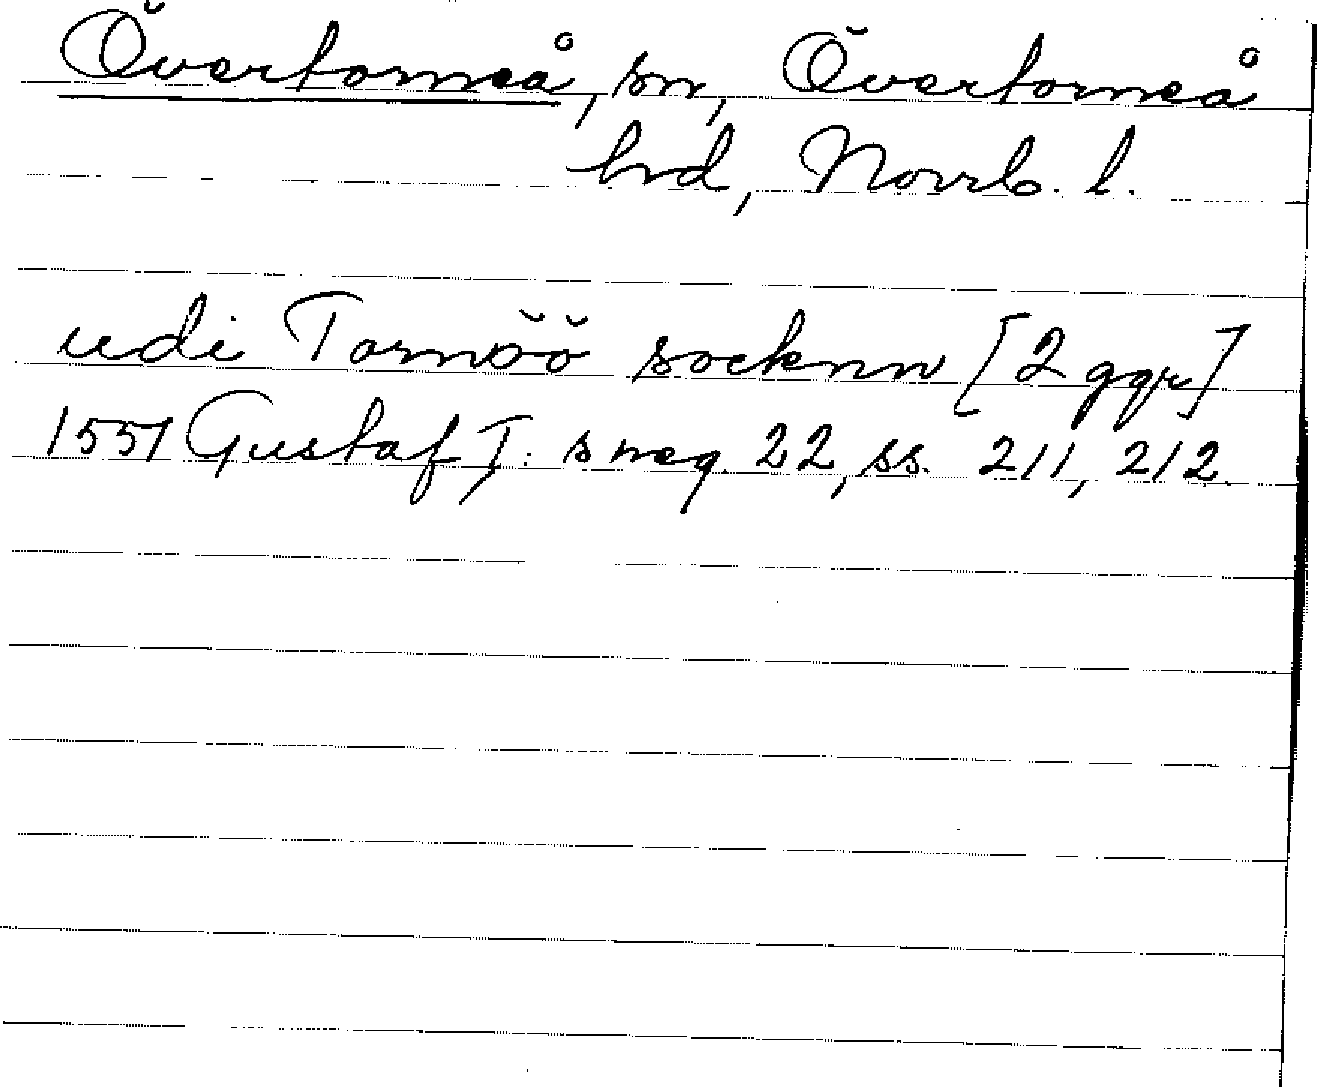 Övertorneå, sn, Övertorneå
hd, Norrb. l.
udi Tornöö socknn [2 ggr]
1551 Gustaf I: s reg. 22, ss. 211, 212.